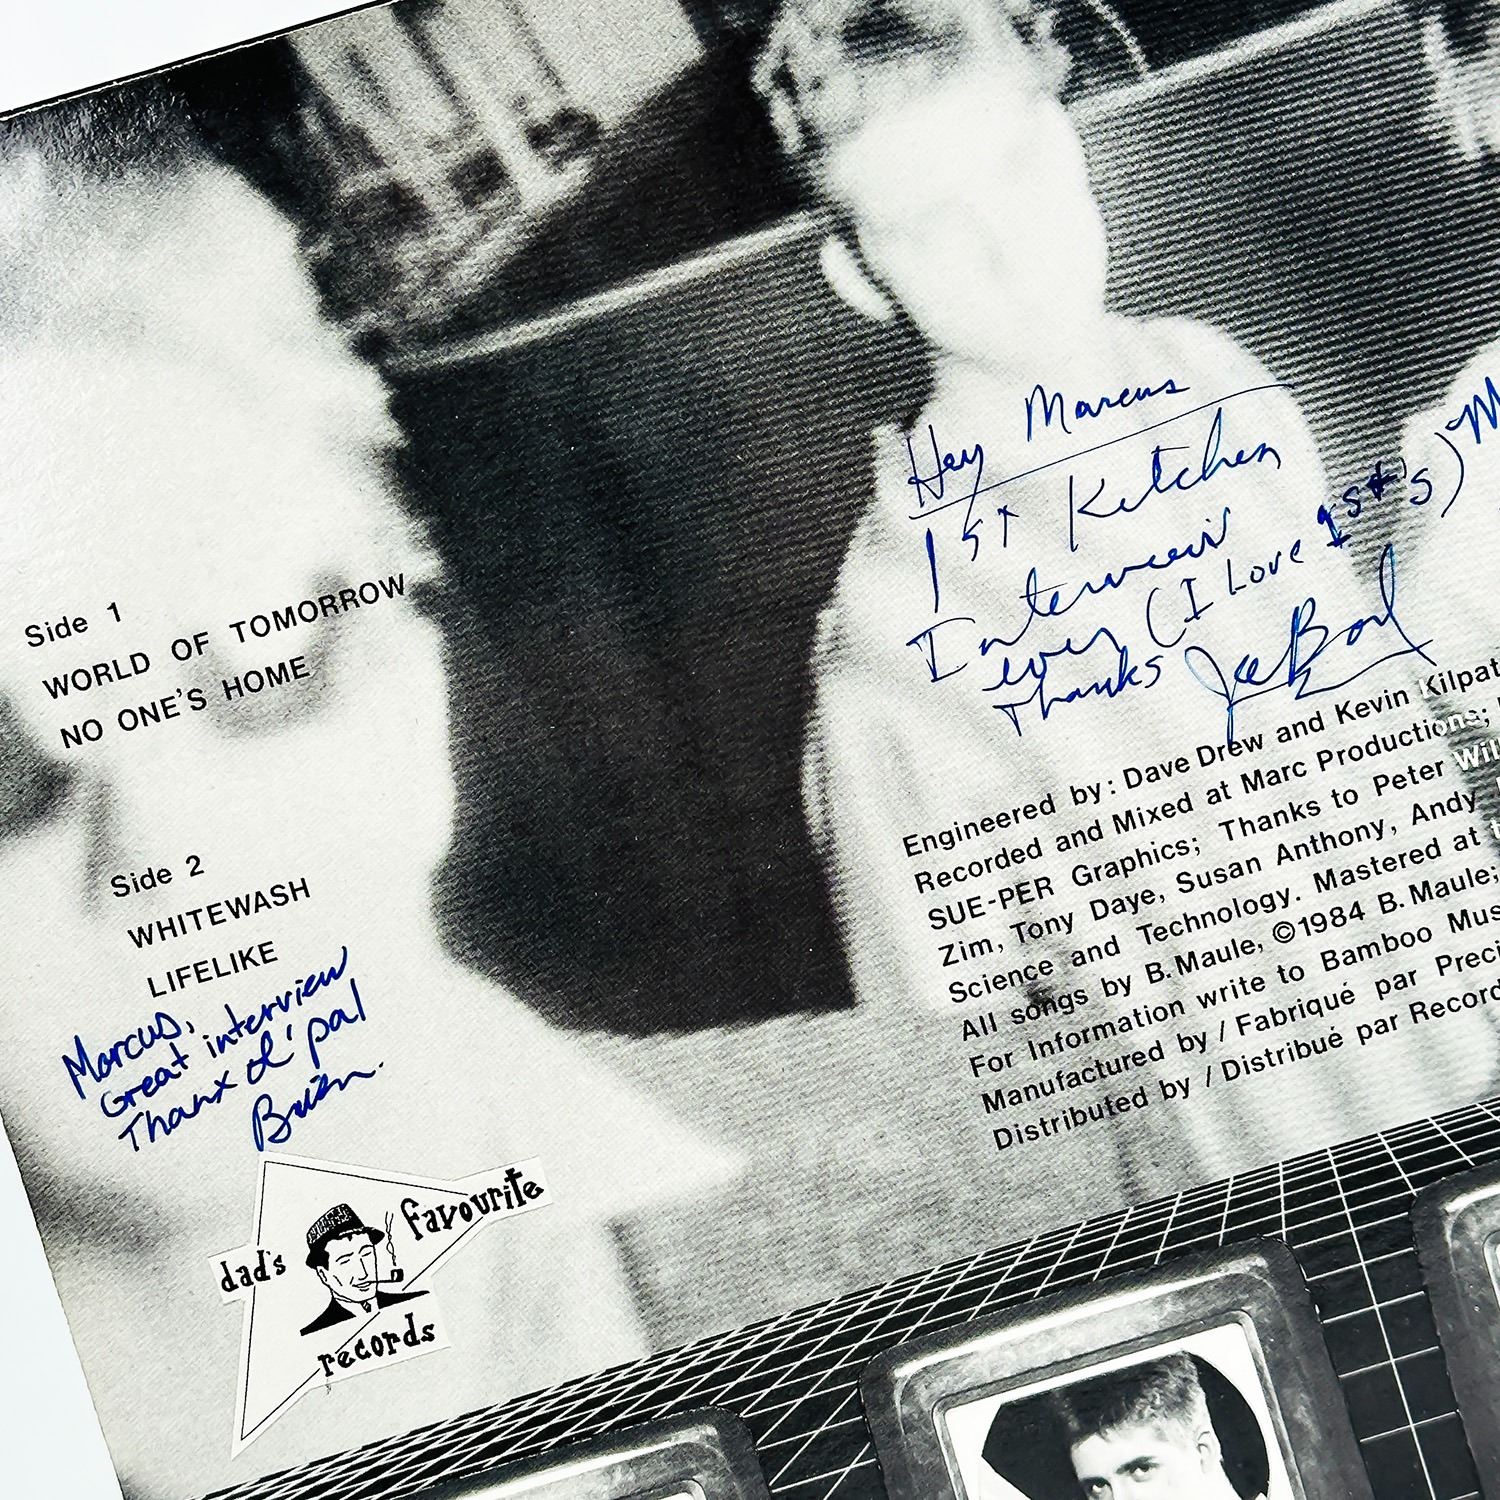 Side 1
WORLD OF TOMORROW
NO ONE'S HOME
Side 2
WHITEWASH
LIFELIKE
Marcus,
Great interview
Thanx ol' pal
Brian.
dad's
favourite
records
Hey Marcus
1st Kitchen
Interview
ever (I Love 1st's)
Thanks Joe
Engineered by: Dave Drew and Kevin Kilpat
Recorded and Mixed at Marc Productions;
SUE-PER Graphics; Thanks to Peter Wil
Zim, Tony Daye, Susan Anthony, Andy
Science and Technology. Mastered at
All songs by B. Maule, ©1984 B. Maule;
For Information write to Bamboo Mus
Manufactured by / Fabriqué par Preci
Distributed by / Distribué par Record